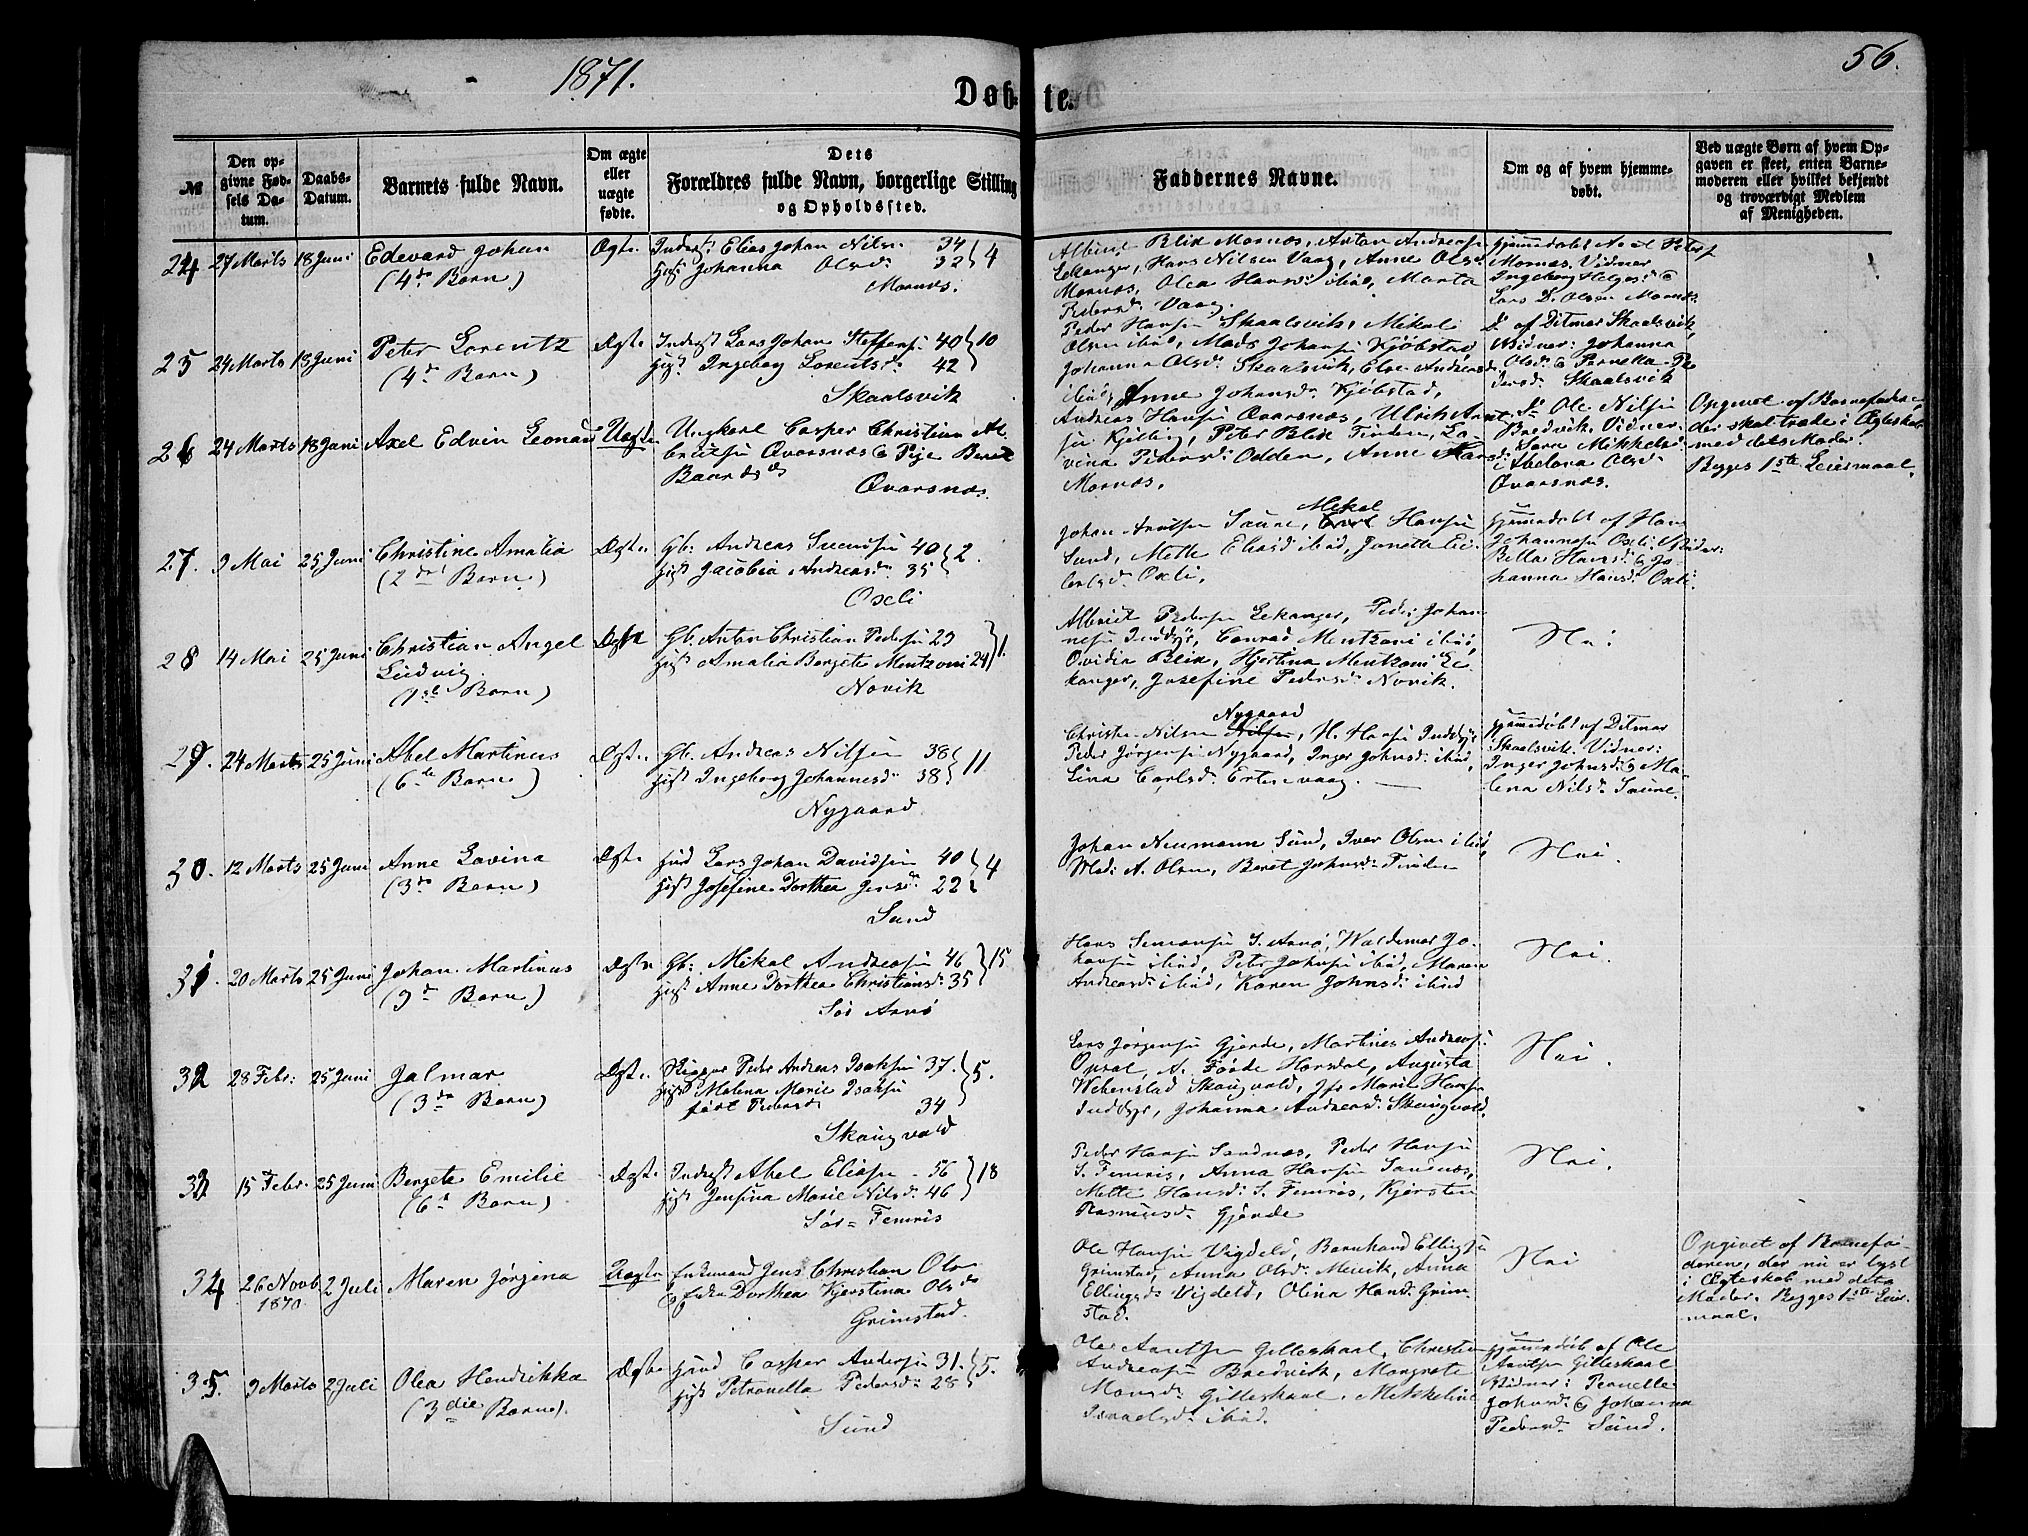 1871.
56.
Døbte.
№
Den op-
givne Fød-
sels Da-
tum.
Daabs-
Datum.
Barnets fulde Navn.
Om ægte
eller
uægte
fødte.
Dets
Forældres fulde Navn, borgerlige Stilling
og Opholdssted.
Faddernes Navne.
Om og af hvem hjemme-
døbt.
Ved uægte Børn af hvem Op-
gaven er skeet, enten Barne-
moderen eller hvilket bekjendt
og troværdigt Medlem
af Menigheden.
24 27 Marts 18 Juni Edevard Johan
(4de Barn)
Ægte
Elias Johan Nils. 34
Johanna Olsd. 32 } 4
Mornæs.
Blix Mornæs, Anton Andreas
Hans Nilsen Vaag, Anne Olsd.
Mornæs, Olea Hansd. ibid, Marta
Pedersd. Vaag.
Mornæs. Vidner
Lars D. Olsen Mornæs
25 24 Marts 18 Juni Peter Lorentz
(4de Barn)
Ægte
Inderst Lars Johan Steffens. 40
Ingeborg Lorentsd. 42 } 10
Skaalsvik
Peder Hansen Skaalsvik, Mikal
Olsen ibid, Mads Johansen Kjøbstad,
Johanna Olsd. Skaalsvik, Else Andreasd.
ibid, Anne Johansd. Kjøbstad.
D. af Ditmar Skaalsvik,
Vidner: Johanna
Olsd. & Pernella Pe-
dersd. Skaalsvik
26 24 Marts 18 Juni Axel Edvin Leonard
Uægte
Ungkarl Casper Christian Al-
& Pige Beret
Baardsd.
Qvarsnæs.
Andreas Hansen Qvarsnæs, Ulrik
Peter Blix Tinden, La-
vina Pedersd. Odden, Anne Hansd.
Mornæs.
D. Ole Nilsen
Bredvik. Vidner:
Sara Mikkelsd.
Abelona Olsd.
Qvarsnæs.
Opgivet af Barnefaderen,
der skal træde i Ægteskab
med dets Moder.
Begges 1ste Leiermaal.
27. 9 Mai 25 Juni Christine Amalia
(2det Barn)
Ægte
Gb. Andreas Svendsen 40
Jacobia Andreasd. 35 } 2.
Oxli
Johan Arntsen Saune, Mikal Hansen
Sund, Mette Eliasd ibid, Jonette
Oxli,
Hjemmedøbt af Hans
Johannesen Oxli. Vidner:
Bella Hansd. & Jo-
hanna Hansd. Oxli.
28 14 Mai 25 Juni Christian Angel
Ludvig
(1ste Barn)
Ægte
Gb. Anton Christian Pedersen 29
Amalia Bergete Mentzoni 24 } 1.
Novik
Albrict Pedersen Eekanger, Peder Johan-
nesen Inddyr, Conrad Mentzoni ibid,
Ovidia Blix, Hjertina Mentzoni Ee-
kanger, Josefine Pedersd. Novik.
Nei
29. 24 Marts 25 Juni Abel Martinus
(6te Barn)
Ægte
Gb. Andreas Nilsen 38
Ingeborg Johannesd. 38 } 11
Nygaard
Nygaard
Christen Nilsen Nilsen, H. Hansen Inddyr
Peder Jørgensen Nygaard, Inger Johnsd. ibid,
Lina Carlsd. Ertenvaag.
Hjemmedøbt af Ditmar
Skaalsvik. Vidner:
Inger Johnsd. & Ma-
lena Nilsd. Saune.
30. 12 Marts 25 Juni Anne Lovina
(3de Barn)
Ægte
Lars Johan Davidsen 40
Josefine Dorthea Jensd. 22 } 4
Sund
Johan Neumann Sund, Iver Olsen ibid,
Mad. A. Olsen, Beret Johnsd. Tinden
Nei.
31. 20 Marts 25 Juni Johan Martinus
(9de Barn)
Ægte
Gb. Mikal Andreasen 46
Anne Dorthea Christiansd. 35 } 15
Sør Arnø
Hans Simonsen S. Arnø, Waldemar Jo-
hansen ibid, Peter Johnsen ibid, Maren
Andreasd. ibid, Karen Johnsd. ibid
Nei.
32 28 Febr: 25 Juni Jalmar
(3de Barn)
Ægte
Peder Andreas Isaksen 37.
Malena Marie Isaksen
født Pedersd. 34 } 5.
Skaugvold
Lars Jørgensen Gjørde, Martines Andreas.
Opsal, A. Horsdal, Augusta
Skaugvold, Marie Hansen
Inddyr, Johanna Andreasd. Skaugvold.
Nei.
33 15 Febr. 25 Juni Bergete Emilie
(6te Barn)
Ægte
Inderst Abel Eliasen 56
Jensina Marie Nilsd. 46 } 18
Sør-Femris
Peder Hansen Sandnæs, Peder Hansen
S. Femris, Anna Hansen Sandnæs,
Mette Hansd. S. Femris, Kjersten
Rasmusd. Gjørde
Nei.
34 26 Novb 1870 2 Juli Maren Jørgina
Uægte
Enkemand Jens Christian Ols.
& Enke Dorthea Kjerstina Olsd.
Grimstad.
Ole Hansen Vigdeld, Barnhard Ellingsen
Grimstad, Anna Olsd. Mevik, Anna
Ellingsd. Vigdeld, Olina Hansd. Grim-
stad.
Nei
Opgivet af Barnefa-
deren, der nu er lyst
i Ægteskab med dets
Moder. Begges 1ste Leier-
maal.
35. 9 Marts 2 Juli Olea Hendrikka
(3die Barn).
Ægte
Casper Andersen 31.
Petronella Pedersd. 28 } 5.
Sund
Ole Arntsen Gilleskaal, Christen
Andreasen Bredvik, Margrete
Monsd. Gilleskaal, Mikkeline
Israelsd. ibid.
Hjemmedøbt af Ole
Arntsen Gilleskaal
Vidner: Pernelle
Johnsd. & Johanna
Pedersd. Sund.